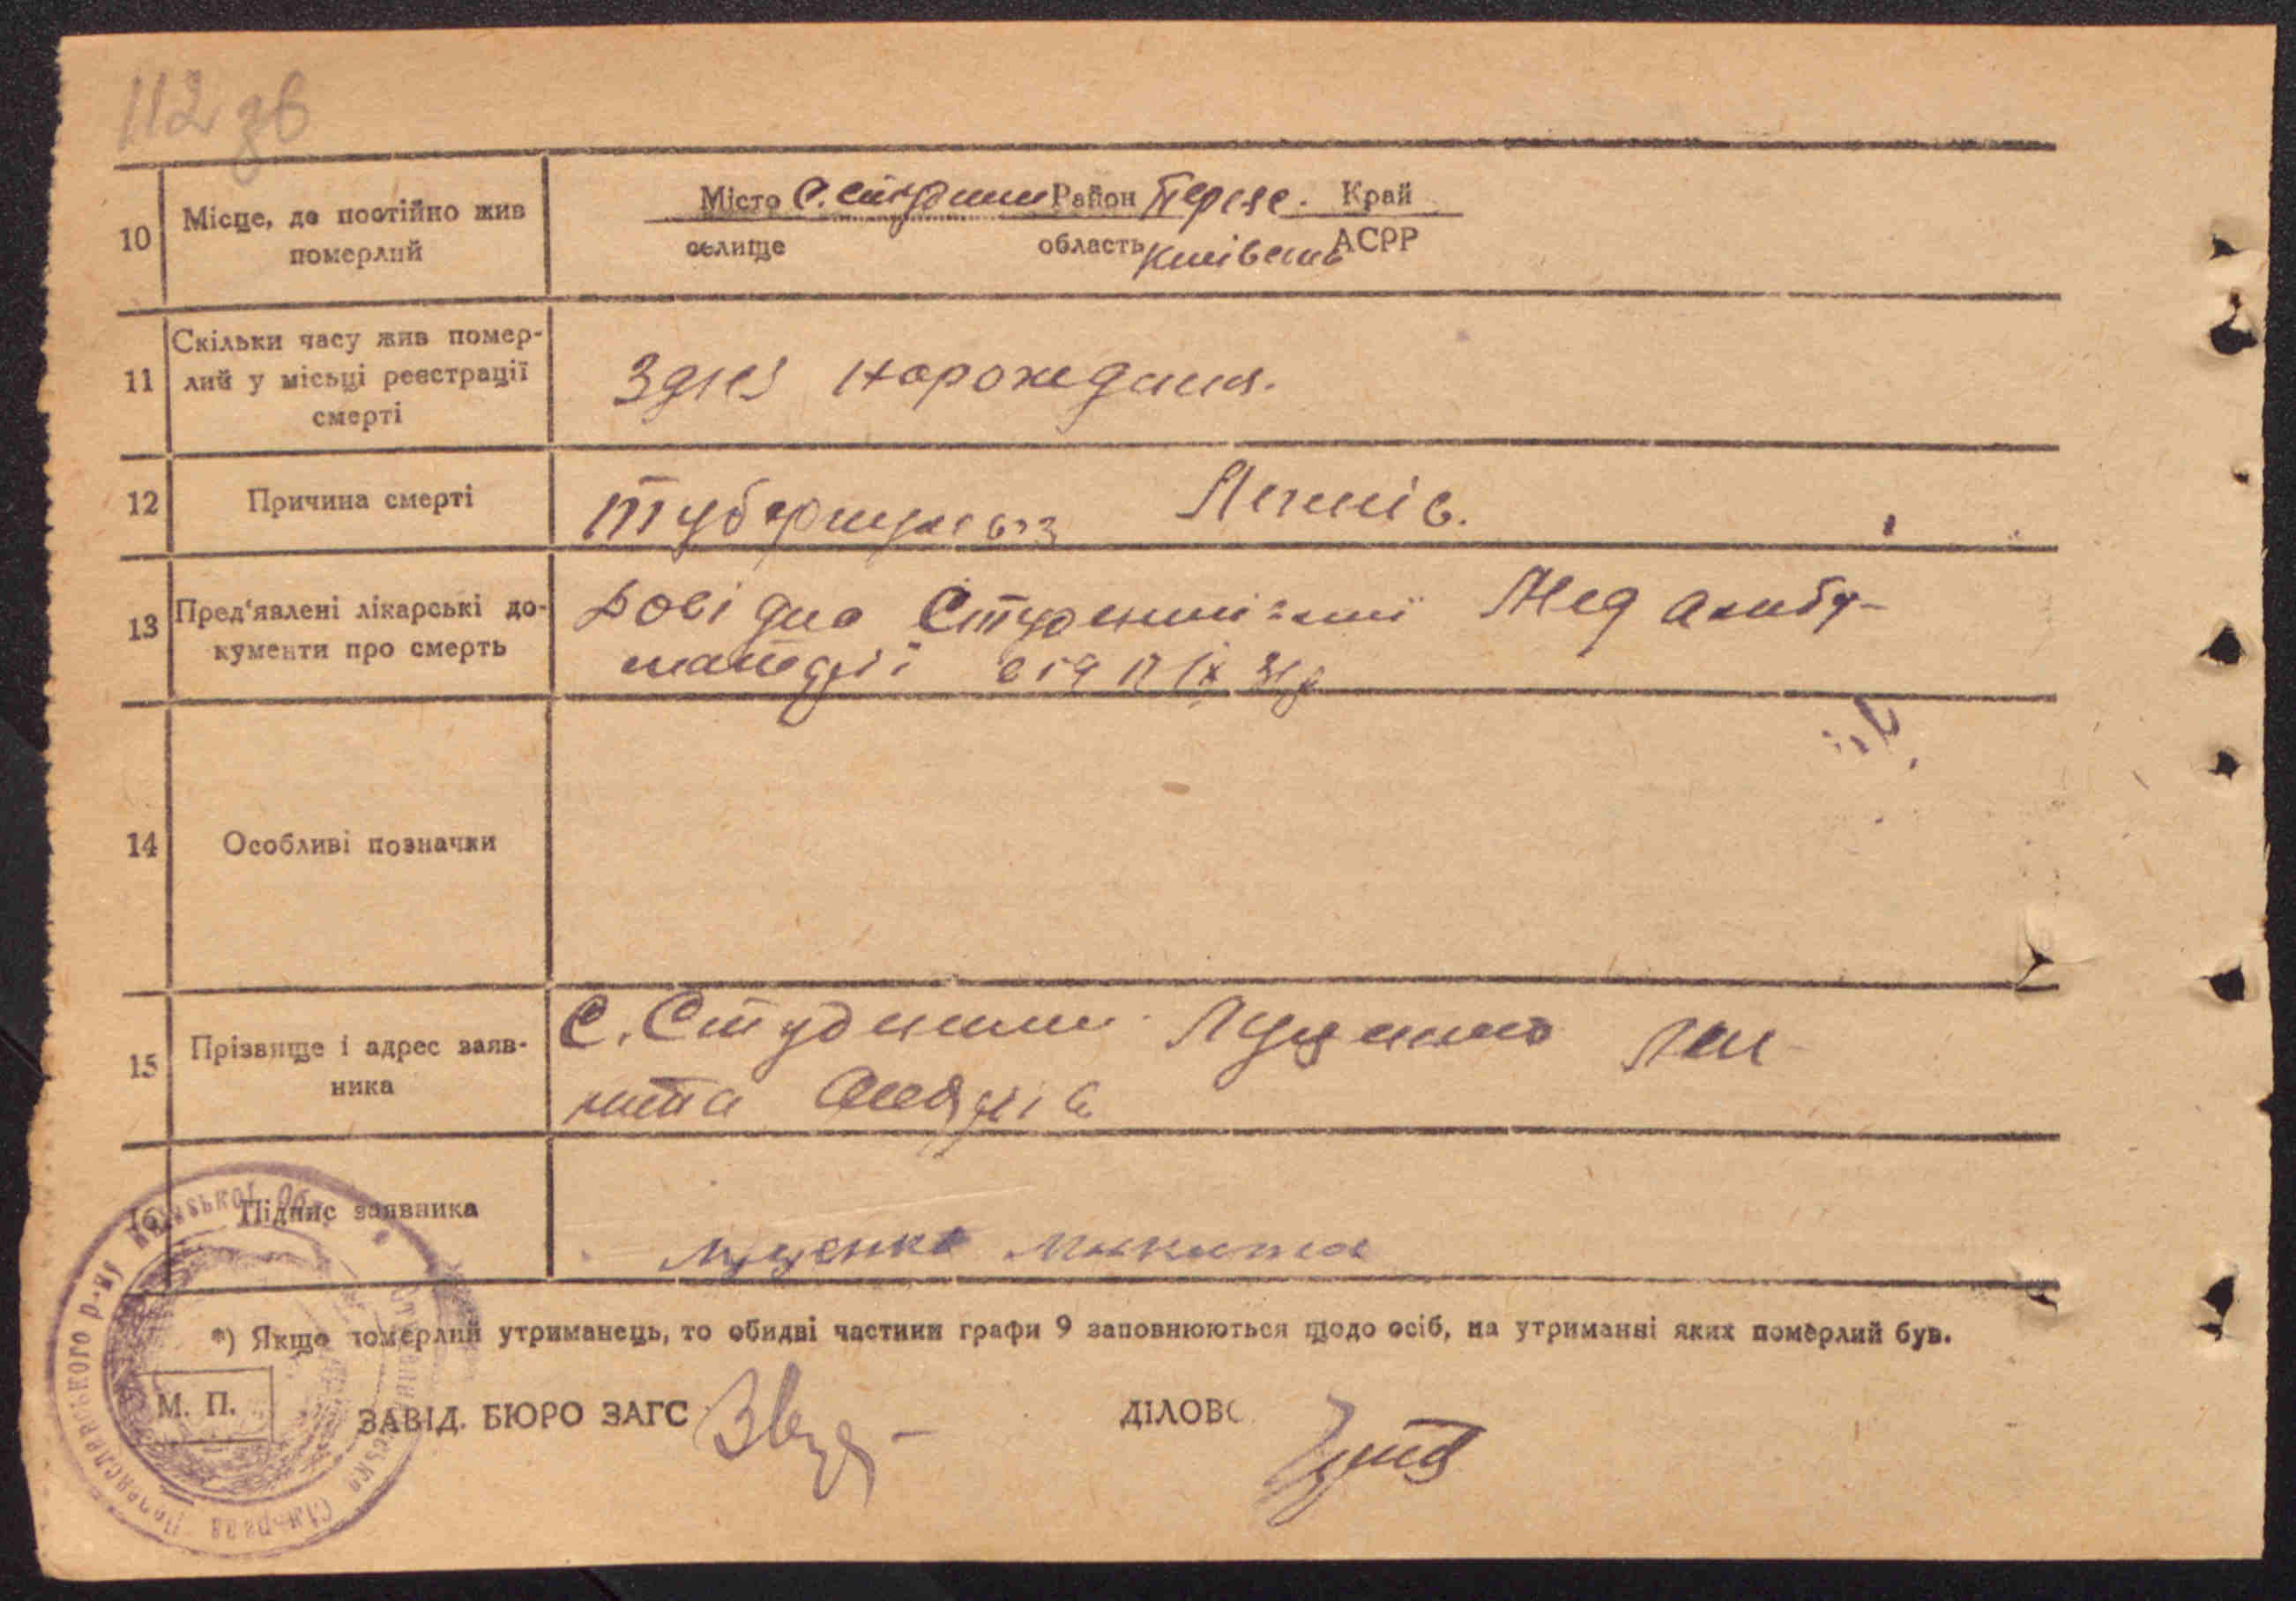 112 зв
10 Місце, де постійно жив померлий
Місто с. Студеники Район Переяс. Край
селище область Київська АСРР
11 Скільки часу жив помер-
лий у місьці реєстрації
смерті
з дня народження.
12 Причина смерті
туберкульоз Легенів.
13 Пред'явлені лікарські до-
кументи про смерть
Довідка Студениківської Мед амбу-
латорії від
14 Особливі позначки
15 Прізвище і адрес заяв-
ника
С. Студеники Луценко Ми-
кита Андрів
16 Підпис заявника
Луценко Микита
*) Якщо померлий утриманець, то обидві частини графи 9 заповнюються щодо осіб, на утриманні яких померлий був.
М. П.
ЗАВІД. БЮРО ЗАГС
ДІЛОВ